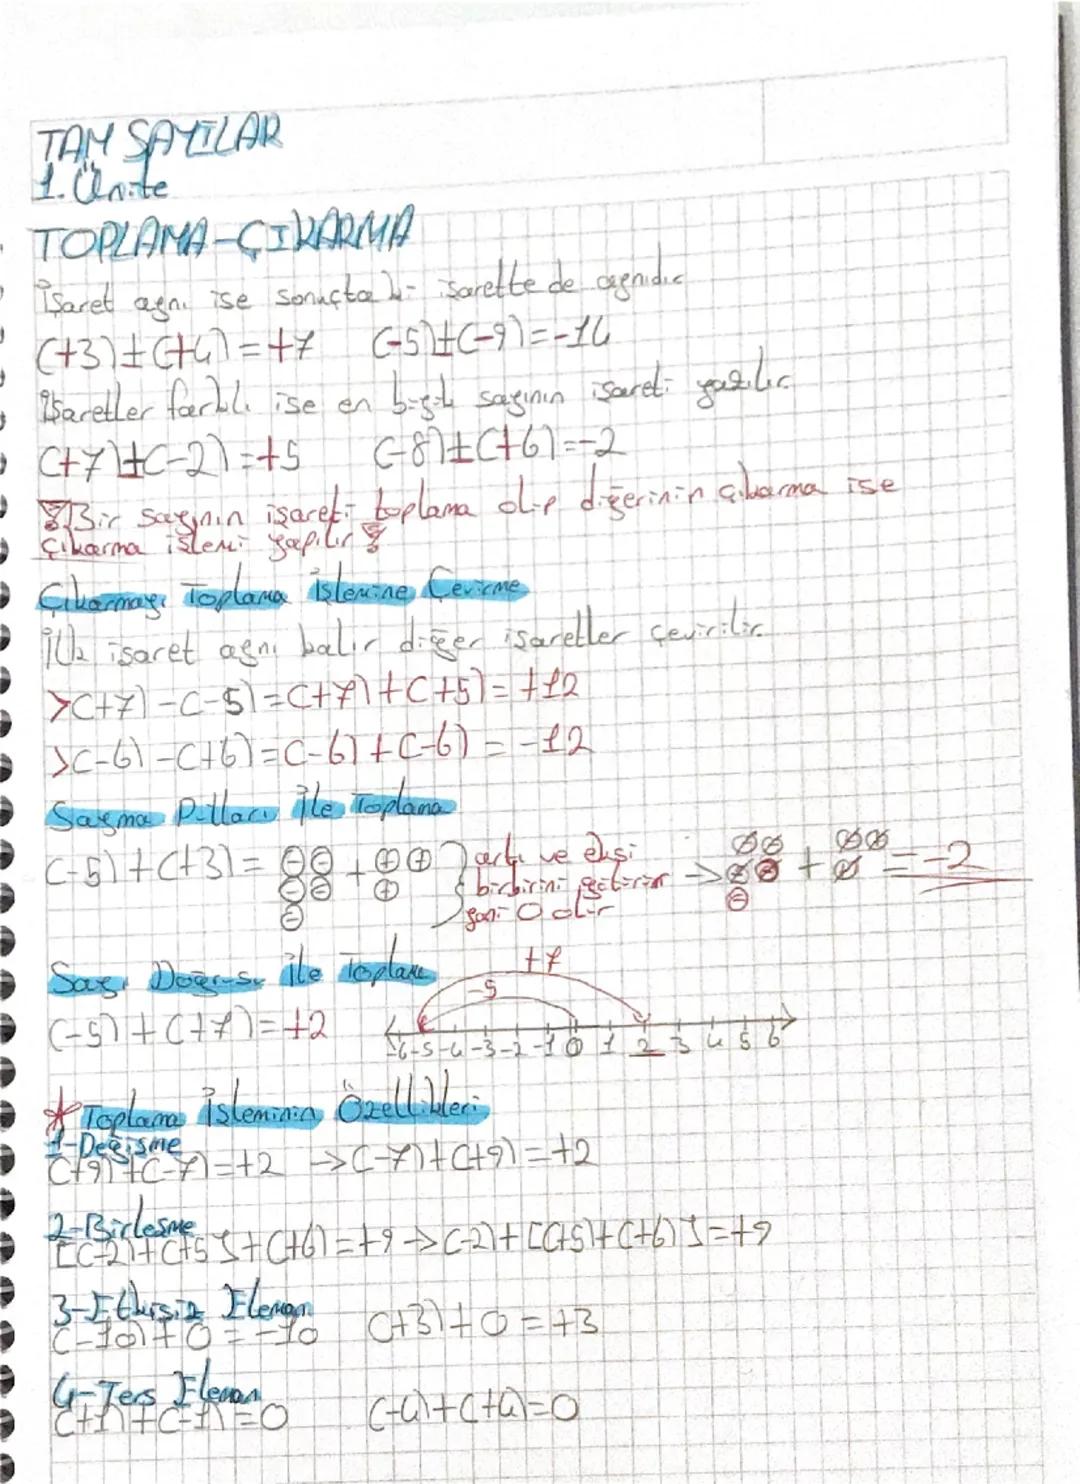 TAM SAYILAR
1. Ünite
TOPLAMA-ÇIKARMA
İşaret aynı ise sonuçtaki işarette de aynıdır
(+3)+(+4)=+7 (-5)+(-9)=-14
İşaretler farklı ise en büyük sayının işareti yazılır
(+7)+(-2)=+5 (-8)+(+6)=-2
Bir sayının işareti toplama olup diğerinin çıkarma ise
çıkarma işlemi yapılır
Çıkarmayı Toplama İşlemine Çevirme
İlk işaret aynı kalır diğer işaretler çevirilir.
>(+7)-(-5)=(+7)+(+5)=+12
>(-6)-(+6)=(-6)+(-6)=-12
Sayma Pulları İle Toplama
(-5)+(+3)= ⊖⊖ + ⊕⊕ } artı ve eksi → + = -2
⊖⊖ ⊕ birbirini götürür
⊖ yani 0 olur ⊖
Sayı Doğrusu İle Toplama +7
-5
(-5)+(+7)=+2 -6 -5 -4 -3 -2 -1 0 1 2 3 4 5 6
* Toplama İşleminin Özellikleri
1-Değişme
(+9)+(-7)=+2 →(-7)+(+9)=+2
2-Birleşme
[(-2)+(+5]+(+6)=+9→(-2)+[(+5)+(+6)]=+9
3-Etkisiz Eleman
(-10)+0=-10 (+3)+0=+3
4-Ters Eleman
(+1)+(-1)=0 (-4)+(+4)=0